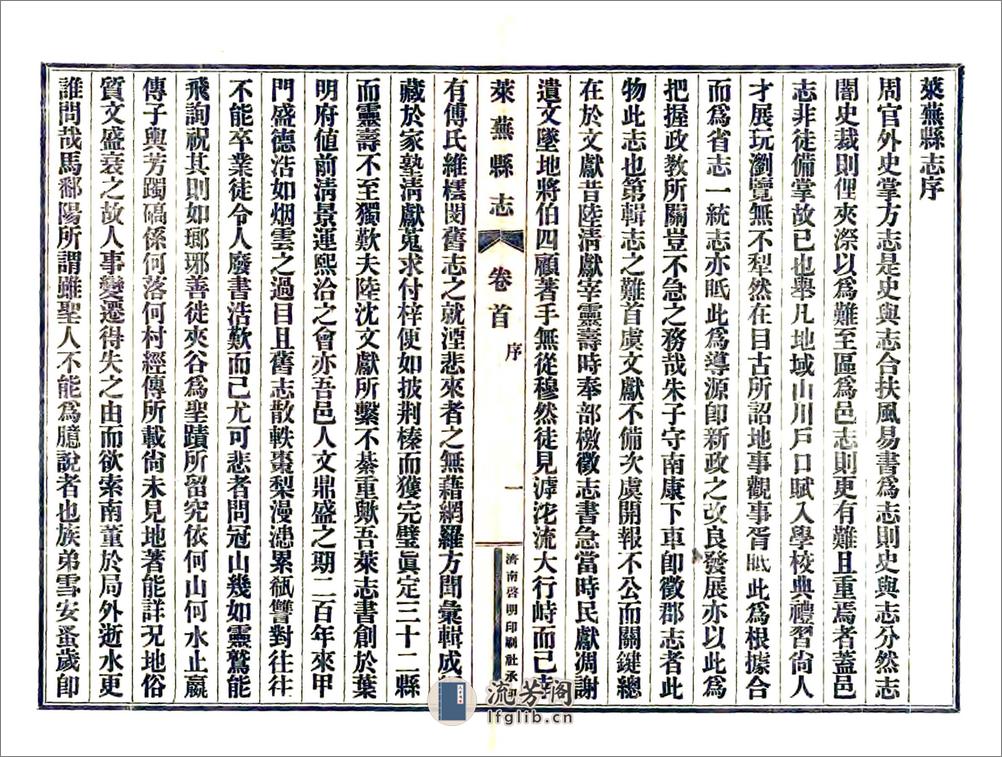 萊蕪縣志序
周官外史掌方志是史與志合扶風易書為志則史與志分然志
闇史裁則俚夾漈以為難至區為邑志則更有難且重焉者蓋邑
志非徒備掌故已也舉凡地域山川戶口賦入學校典禮習尙人
才展玩瀏覽無不犁然在目古所詔地事觀事胥眡此為根據合
而為省志一統志亦眡此為導源卽新政之改良發展亦以此為
把握政教所關豈不急之務哉朱子守南康下車卽徵郡志者此
物此志也第輯志之難首虞文獻不備次虞開報不公而關鍵總
在於文獻昔陸清獻宰靈壽時奉部檄徵志書急當時民獻凋謝
遺文墜地將伯四顧著手無從穆然徒見滹沱流大行峙而已幸
萊蕪縣志
卷首
序
一
濟南啓明印刷社承印
有傅氏維橒閔舊志之就湮悲來者之無藉網羅方聞彙輯成
藏於家塾清獻蒐求付梓便如披荆榛而獲完璧眞定三十二縣
而靈壽不至獨歎夫陸沈文獻所繫不綦重歟吾萊志書創於葉
明府値前清景運熙洽之會亦吾邑人文鼎盛之朞二百年來甲
門盛德浩如烟雲之過目且舊志散軼棗梨漫漶累瓻讐對往往
不能卒業徒令人廢書浩歎而已尤可悲者問冠山幾如靈鷲能
飛詢祝其則如瑯琊善徒夾谷為聖蹟所留究依何山何水止嬴
傳子與芳躅碻係何落何村經傳所載尙未見地著能詳况地俗
質文盛衰之故人事變遷得失之由而欲索南董於局外逝水更
誰問哉馬鄱陽所謂雖聖人不能為臆說者也族弟雪安蚤歲卽
流芳閣
lfglib.cn